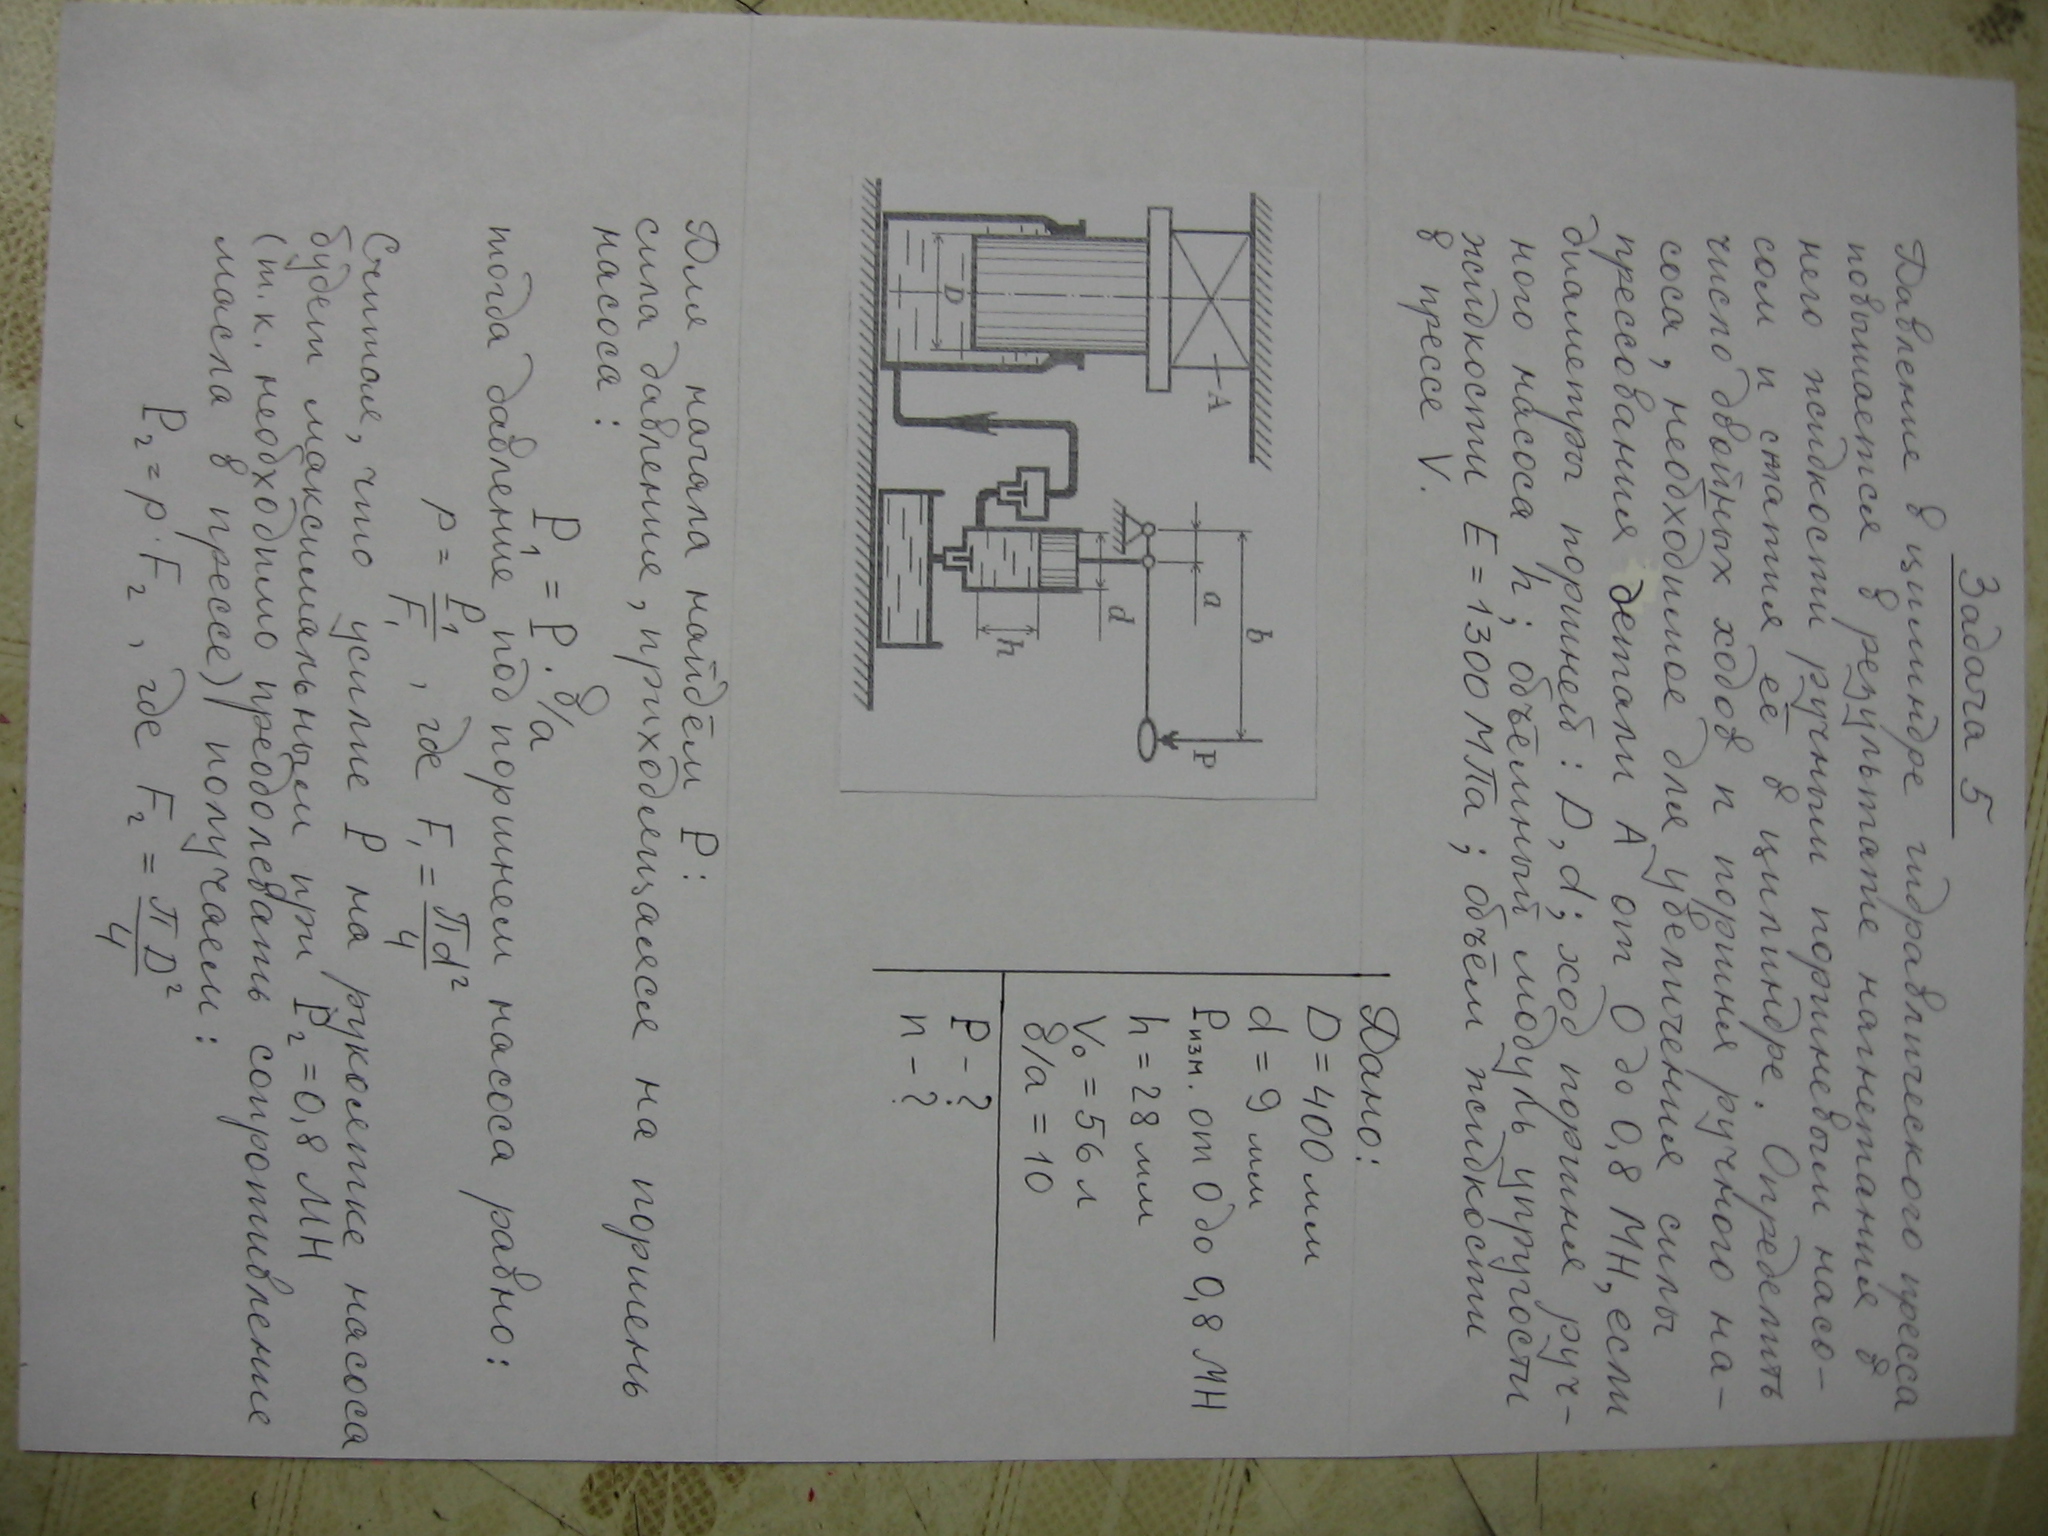 Задача 5
Давление в цилиндре гидравлического пресса
повышается в результате нагнетания в
него жидкости ручным поршневым насо-
сом и сжатия её в цилиндре. Определить
число двойных ходов n поршня ручного на-
соса, необходимое для увеличения силы
прессования детали A от 0 до 0,8 МН, если
диаметры поршней: D, d; ход поршня руч-
ного насоса h; объёмный модуль упругости
жидкости E = 1300 МПа; объём жидкости
в прессе V.
A
D
a
b
d
h
P
Дано:
D = 400 мм
d = 9 мм
Pизм. от 0 до 0,8 МН
h = 28 мм
V₀ = 56 л
в/a = 10
P - ?
n - ?
Для начала найдём P:
сила давления, приходящаяся на поршень
насоса:
P₁ = P · в/a
тогда давление под поршнем насоса равно:
p = P₁/F₁, где F₁ = πd²/4
Считая, что усилие P на рукоятке насоса
будет максимальным при P₂ = 0,8 МН
(т.к. необходимо преодолевать сопротивление
масла в прессе) получаем:
P₂ = p · F₂, где F₂ = πD²/4